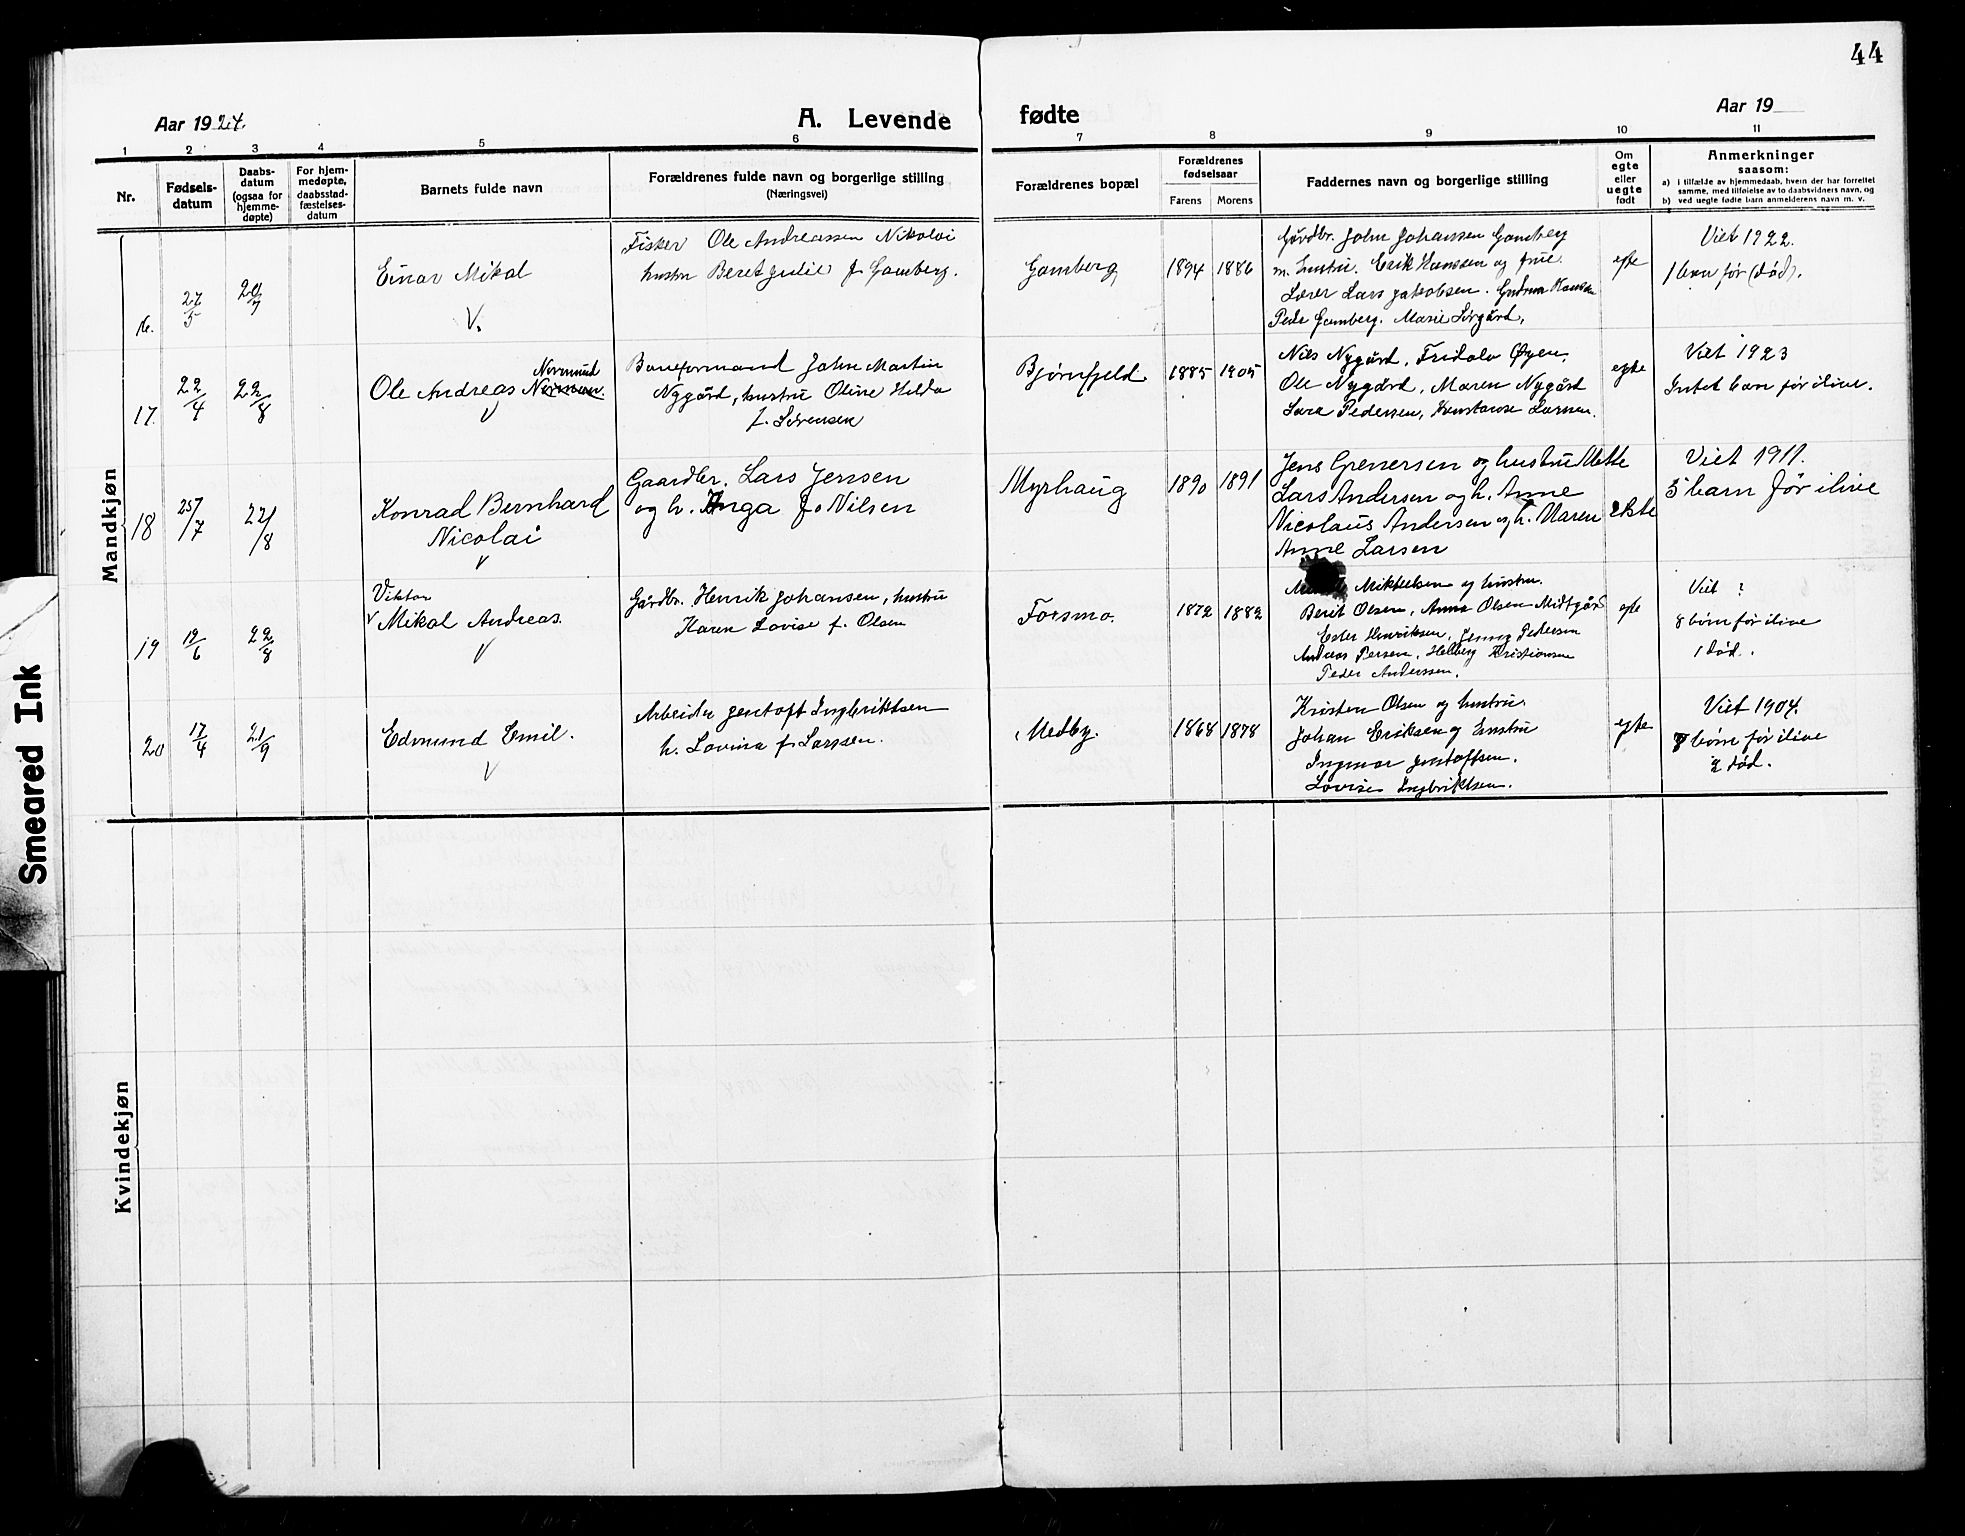 44
Aar 1924.
A. Levende fødte
Aar 19
1 2 3 4 5 6 7 8 9 10 11
Nr.
Fødsels-
datum
Daabs-
datum
(ogsaa for
hjemme-
døpte)
For hjem-
medøpte,
daabsstad-
fæstelses-
datum
Barnets fulde navn
Forældrenes fulde navn og borgerlige stilling
(Næringsvei)
Forældrenes bopæl
Forældrenes
fødselsaar
Farens Morens
Faddernes navn og borgerlige stilling
Om
egte
eller
uegte
født
Anmerkninger
saasom:
a) i tilfælde av hjemmedaab, hvem der har forrettet
samme, med tilføielse av to daabsvidners navn, og
b) ved uegte fødte barn anmelderens navn m. v.
Mandkjøn
16.
27/5
20/7
Einar Mikal
V.
Fisker Ole Andreassen Nikolai
hustru Beret Julie f. Gamberg.
Gamberg
1894 1886
Gårdbr. John Johansen Gamberg
m. hustru. Erik Hanssen og frue.
Lærer Lars Jakobsen. Gudrun Hanssen
Peder Gamberg. Marie Sørgård,
egte
Viet 1922.
1 barn før (død).
17.
22/4
22/8
Normund
Ole Andreas Normann.
V
Baneformand John Martin
Nygård, hustru Oline Hilda
f. Sørensen
Bjørnfjeld
1885 1905
Nils Nygård, Fridolv Øyen,
Ole Nygård, Maren Nygård
Sara Pedersen, Konstanse Larsen.
egte
Viet 1923
Intet barn før ilive.
18
25/7
22/8
Konrad Bernhard
Nicolai
V
Gaardbr. Lars Jensen
og h. Inga f. Nilsen
Myrhaug
1890 1891
Jens Grenersen og hustru Mette
Lars Andersen og h. Anne
Nicolaus Andersen og h. Maren
Anne Larsen
ekte
Viet 1911.
5 barn før ilive
19
12/6
22/8
Viktor
V Mikal Andreas.
V
Gårdbr. Henrik Johansen, hustru
Karen Lovise f. Olsen
Forsmo.
1872 1882
Mikkelsen og hustru.
Berit Olsen, Anna Olsen Midtgård
Ester Henriksen, Jenny Pedersen
Andreas Persen, Helberg Kristiansen
Peder Anderssen.
egte
Viet ?
8 børn før ilive
1 død.
20
17/4
21/9
Edmund Emil.
V
Arbeider Jentoft Ingbriktsen
h. Lovina f. Larssen.
Medby.
1868 1878
Kristen Olsen og hustru.
Johan Eriksen og hustru
Ingmar Jentoftsen.
Lovise Ingbriktsen.
egte
Viet 1904.
8 børn før ilive
2 død.
Kvindekjøn
Smeared Ink